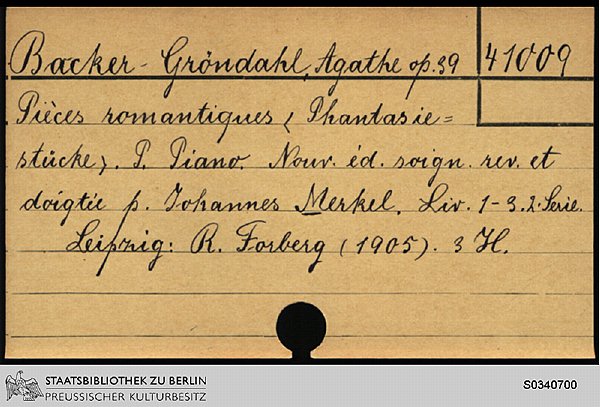 Backer-Gröndahl, Agathe op. 39
41009
Pièces romantiques < Phantasie=
stücke >. P. Piano. Nouv. éd. soign. rev. et
doigtée p. Johannes Merkel. Liv. 1-3. 2. Serie.
Leipzig: R. Forberg (1905). 3 H.
STAATSBIBLIOTHEK ZU BERLIN
PREUSSISCHER KULTURBESITZ
S0340700